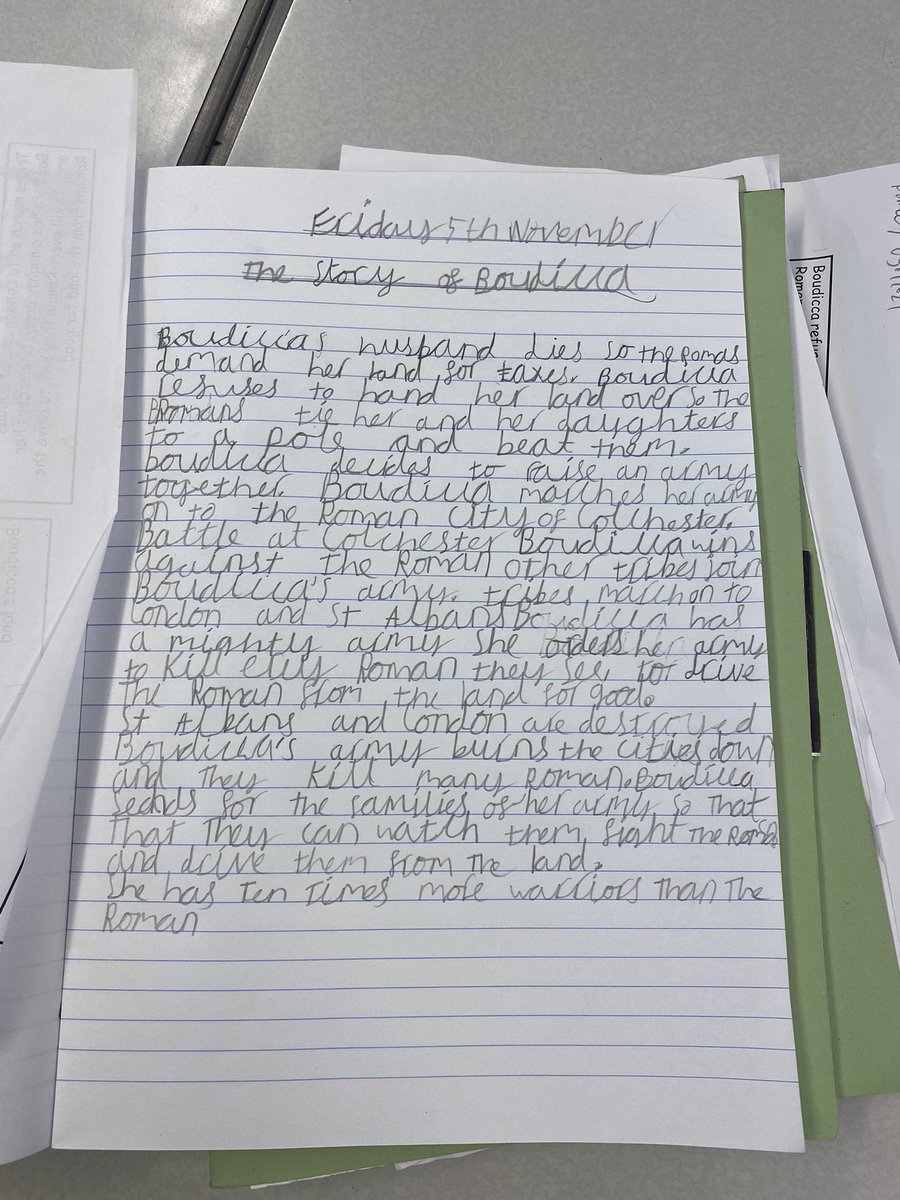 Friday 5th November
The Story of Boudicca
Boudiccas husband dies so the Romas
demand her land for taxes. Boudicca
refuses to hand her land over so the
Romans tie her and her daughters
to a pole and beat them.
boudicca decides to raise an army
together. Boudicca marches her army
on to the Roman City of Colchester.
Battle at Colchester Boudicca wins
against the Roman other tribes join
Boudicca's army. tribes march on to
London and St Albans Boudicca has
a mighty army she orders her army
to Kill evey Roman they see, for drive
the Roman from the land for good.
St Albans and London are destroyed
Boudicca's army burns the cities down
and They Kill many Roman. Boudicca
sends for the families of her army so That
That They can watch them fight The Romas
and drive them from The land.
She has Ten Times more warriors Than The
Roman
Boudicca refu
Roman